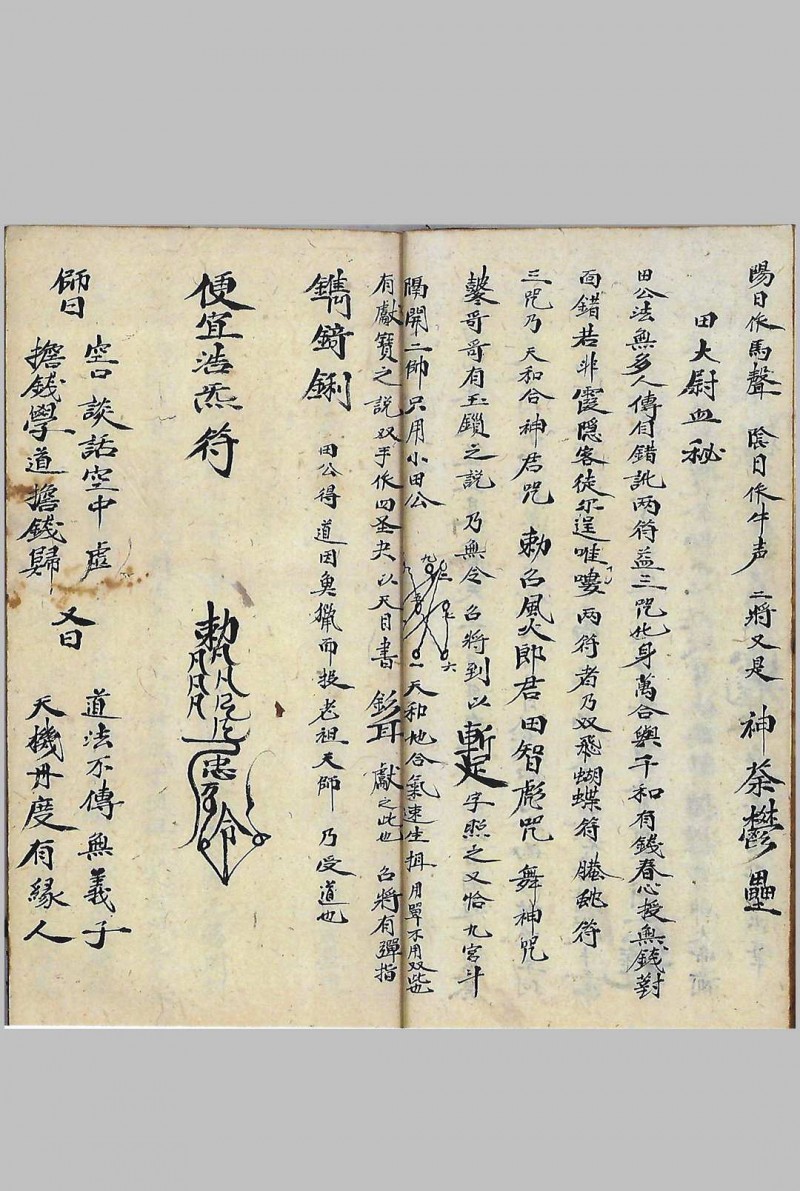 陽日作馬聲 陰日作牛声 二將又是 神荼鬱壘
田大尉血秘
田公法無多人傳自錯訛两符益三咒化身萬合與千和有錢春心授無錢對
面錯若非霞隱客徒尔逞唯嘍两符者乃双飛蝴蝶符 䲢虬符
三咒乃 天和合神君咒 勅召風火郎君田智彪咒 舞神咒
鑿哥哥有玉鎖之説 乃無令召將到以 踅 字照之又恰九宮斗
隔開二帥只用小田公 九 二 五 七 一 六 天和地合氣速生揖用單不用双此也
有獻寶之説双手作四圣夬以天目書 釤耳 獻之此也 召將有彈指
鐫錡鋓 田公得道因奐獵而投老祖天師 乃受道也
便宜浩炁符 勅 忠 令
師曰 空口談話空中虛
擔錢學道擔錢歸
又曰 道法不傳無義子
天機毌度有緣人